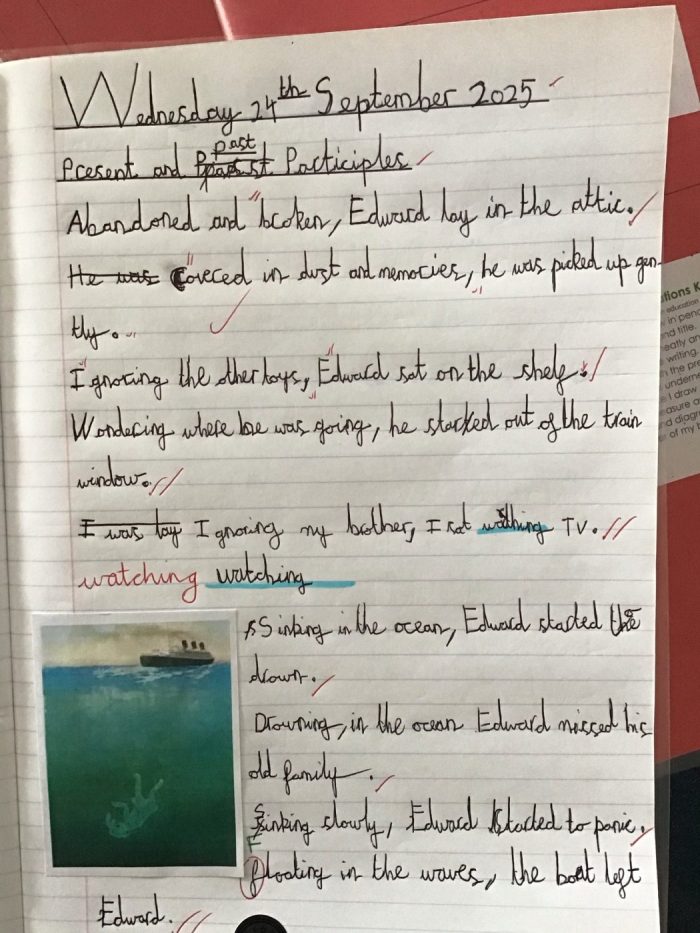 Wednesday 24th September 2025
past
Present and past Participles
Abandoned and broken, Edward lay in the attic.
He was Covered in dust and memories, he was picked up gen-
tly.
Ignoring the other toys, Edward sat on the shelf.
Wondering where he was going, he starked out of the train
window.
I was lay Ignoring my bother, I sat wathing TV.
watching watching
Sinking in the ocean, Edward started the
drown.
Drowning, in the ocean Edward missed his
old family.
Sinking slowly, Edward started to panic.
F
floating in the waves, the boat left
Edward.
tions K
education
in pen
nd title.
eatly an
writing
n the pre
underne
I draw
asure a
d diagr
of my